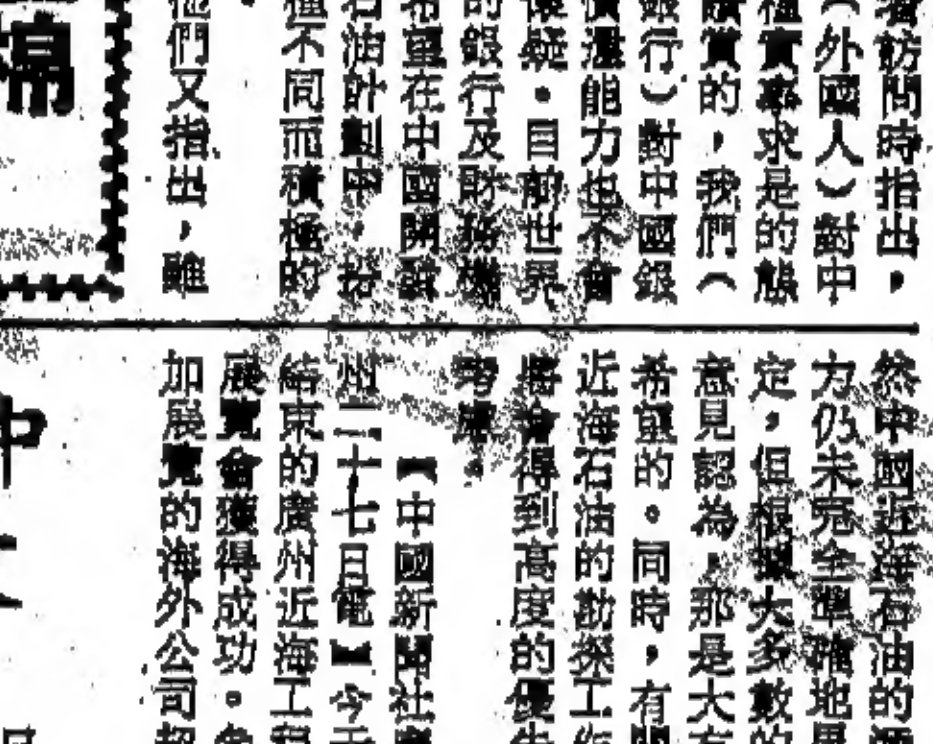 者訪問時指出，
（外國人）對中
種實事求是的態
讚賞的，我們（
銀行）對中國銀
償還能力也不會
懷疑。目前世界
的銀行及財務機
希望在中國開發
石油計劃中，
不同而積極的
他們又指出，雖
然中國近海石油的
方仍未完全準確地
定，但根據大多數的
意見認為，那是大有
希望的。同時，有關
近海石油的勘探工作
將會得到高度的優先
【中國新聞社廣
州二十七日電】今天
結束的廣州近海工程
展覽會獲得成功。參
加展覽的海外公司超
棉
中